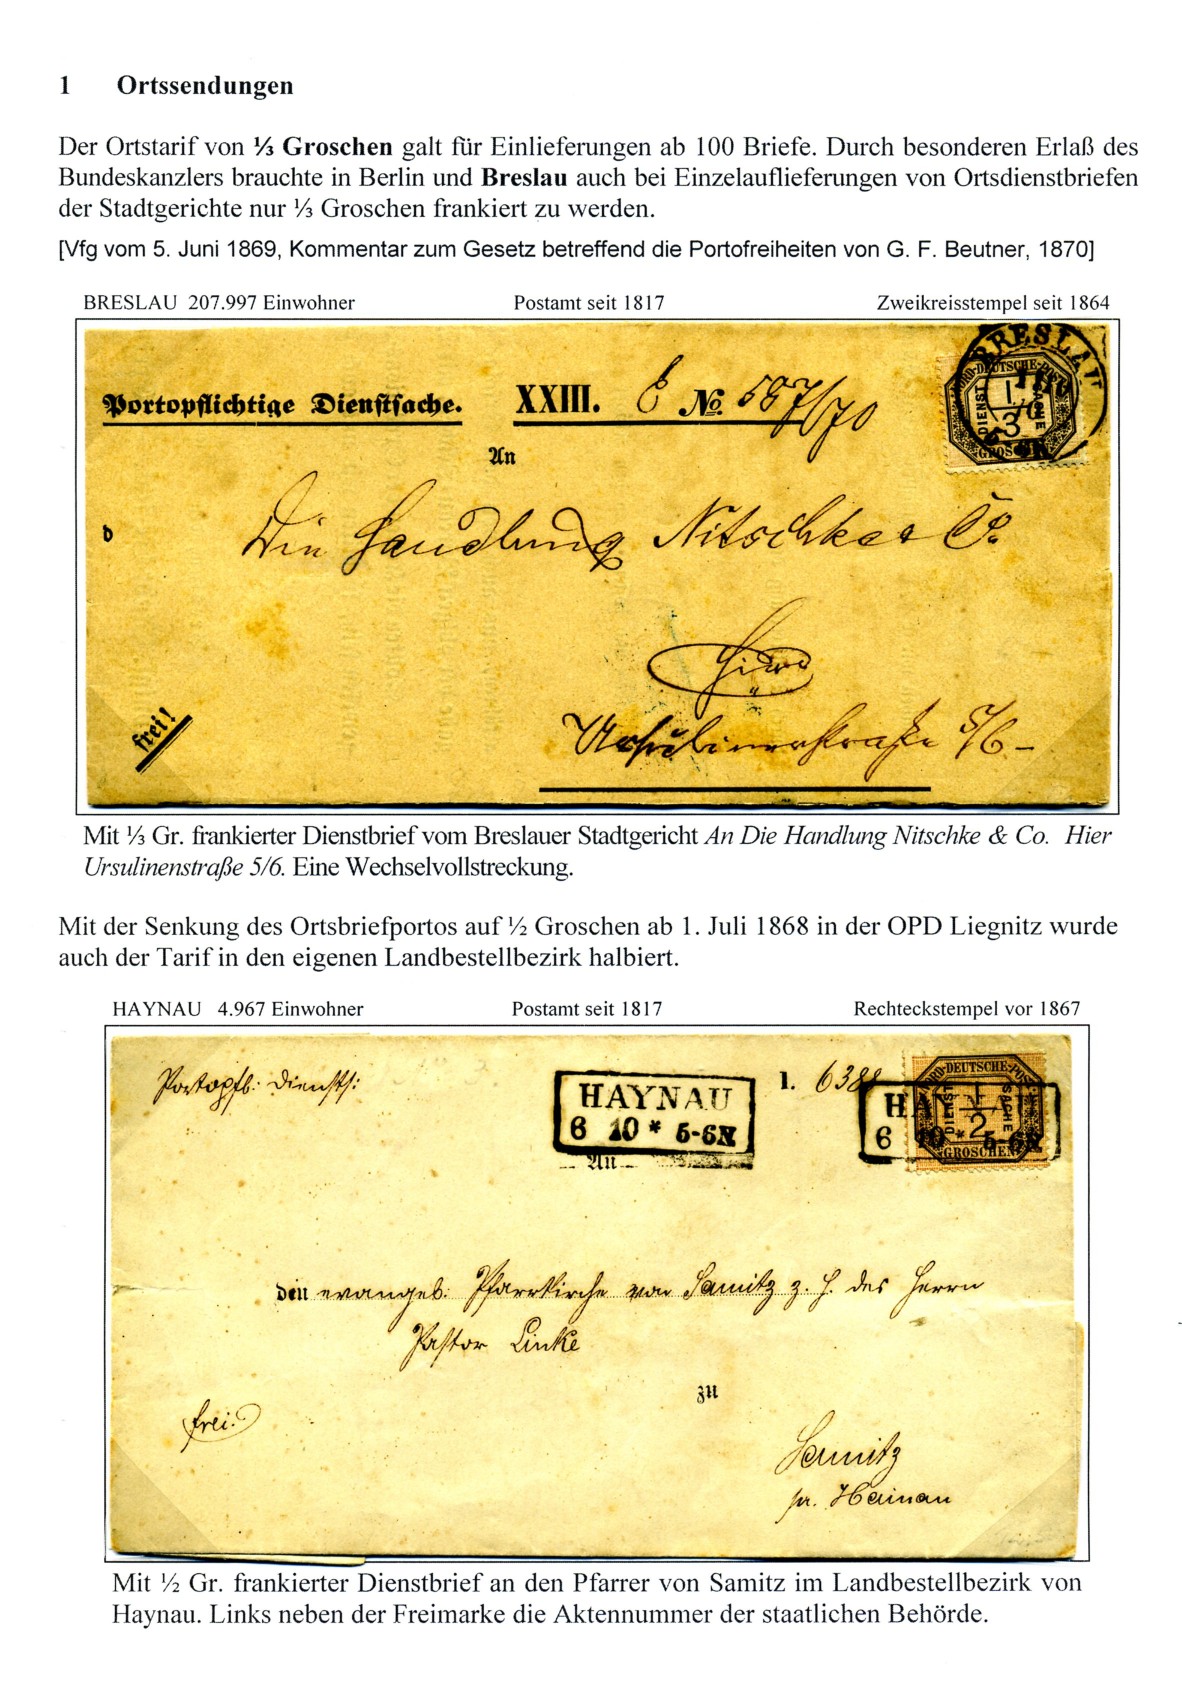 1 Ortssendungen
Der Ortstarif von ⅓ Groschen galt für Einlieferungen ab 100 Briefe. Durch besonderen Erlaß des
Bundeskanzlers brauchte in Berlin und Breslau auch bei Einzelauflieferungen von Ortsdienstbriefen
der Stadtgerichte nur ⅓ Groschen frankiert zu werden.
[Vfg vom 5. Juni 1869, Kommentar zum Gesetz betreffend die Portofreiheiten von G. F. Beutner, 1870]
BRESLAU 207.997 Einwohner Postamt seit 1817 Zweikreisstempel seit 1864
BRESLAU
NORD-DEUTSCHE-POST
DIENST 1/3 SACHE
GROSCHEN
Portopflichtige Dienstsache. XXIII. E No 587/70
An
d Die Handlung Nitschke & Co
Hier
Ursulinerstraße 5/6 -
frei!
Mit ⅓ Gr. frankierter Dienstbrief vom Breslauer Stadtgericht An Die Handlung Nitschke & Co. Hier
Ursulinenstraße 5/6. Eine Wechselvollstreckung.
Mit der Senkung des Ortsbriefportos auf ½ Groschen ab 1. Juli 1868 in der OPD Liegnitz wurde
auch der Tarif in den eigenen Landbestellbezirk halbiert.
HAYNAU 4.967 Einwohner Postamt seit 1817 Rechteckstempel vor 1867
Portopfl: Dienstf:
HAYNAU
6 10 * 5-6N
I. 6388
NORD-DEUTSCHE-POST
DIENST 1/2 SACHE
GROSCHEN
HAYNAU
6 10 * 5-6N
An
den evangel: Pfarrkirche von Samitz z. H. des Herrn
Pastor Linke
zu
frei.
Samitz
pr. Hainau
Mit ½ Gr. frankierter Dienstbrief an den Pfarrer von Samitz im Landbestellbezirk von
Haynau. Links neben der Freimarke die Aktennummer der staatlichen Behörde.